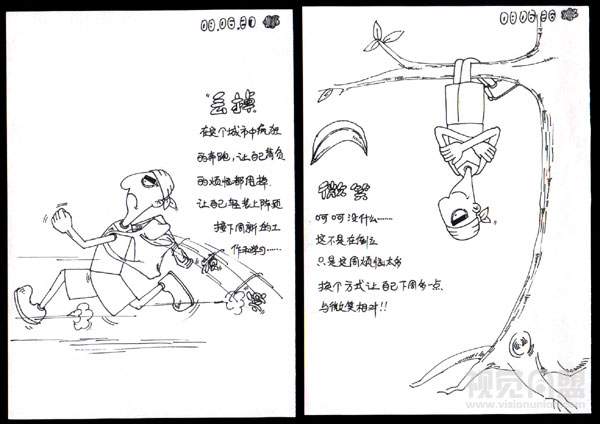 09.06.21
"丢掉
在这个城市中疯狂
的奔跑,让自己背负
的烦恼都甩掉.
让自己轻装上阵迎
接下周新的工
作和学习······
烦
恼
09.06.26
微笑
呵呵没什么······
这不是在倒立
只是这周烦恼太多
换个方式让自己下周多一点.
与微笑相对!!
视觉同盟
www.visionunion.com